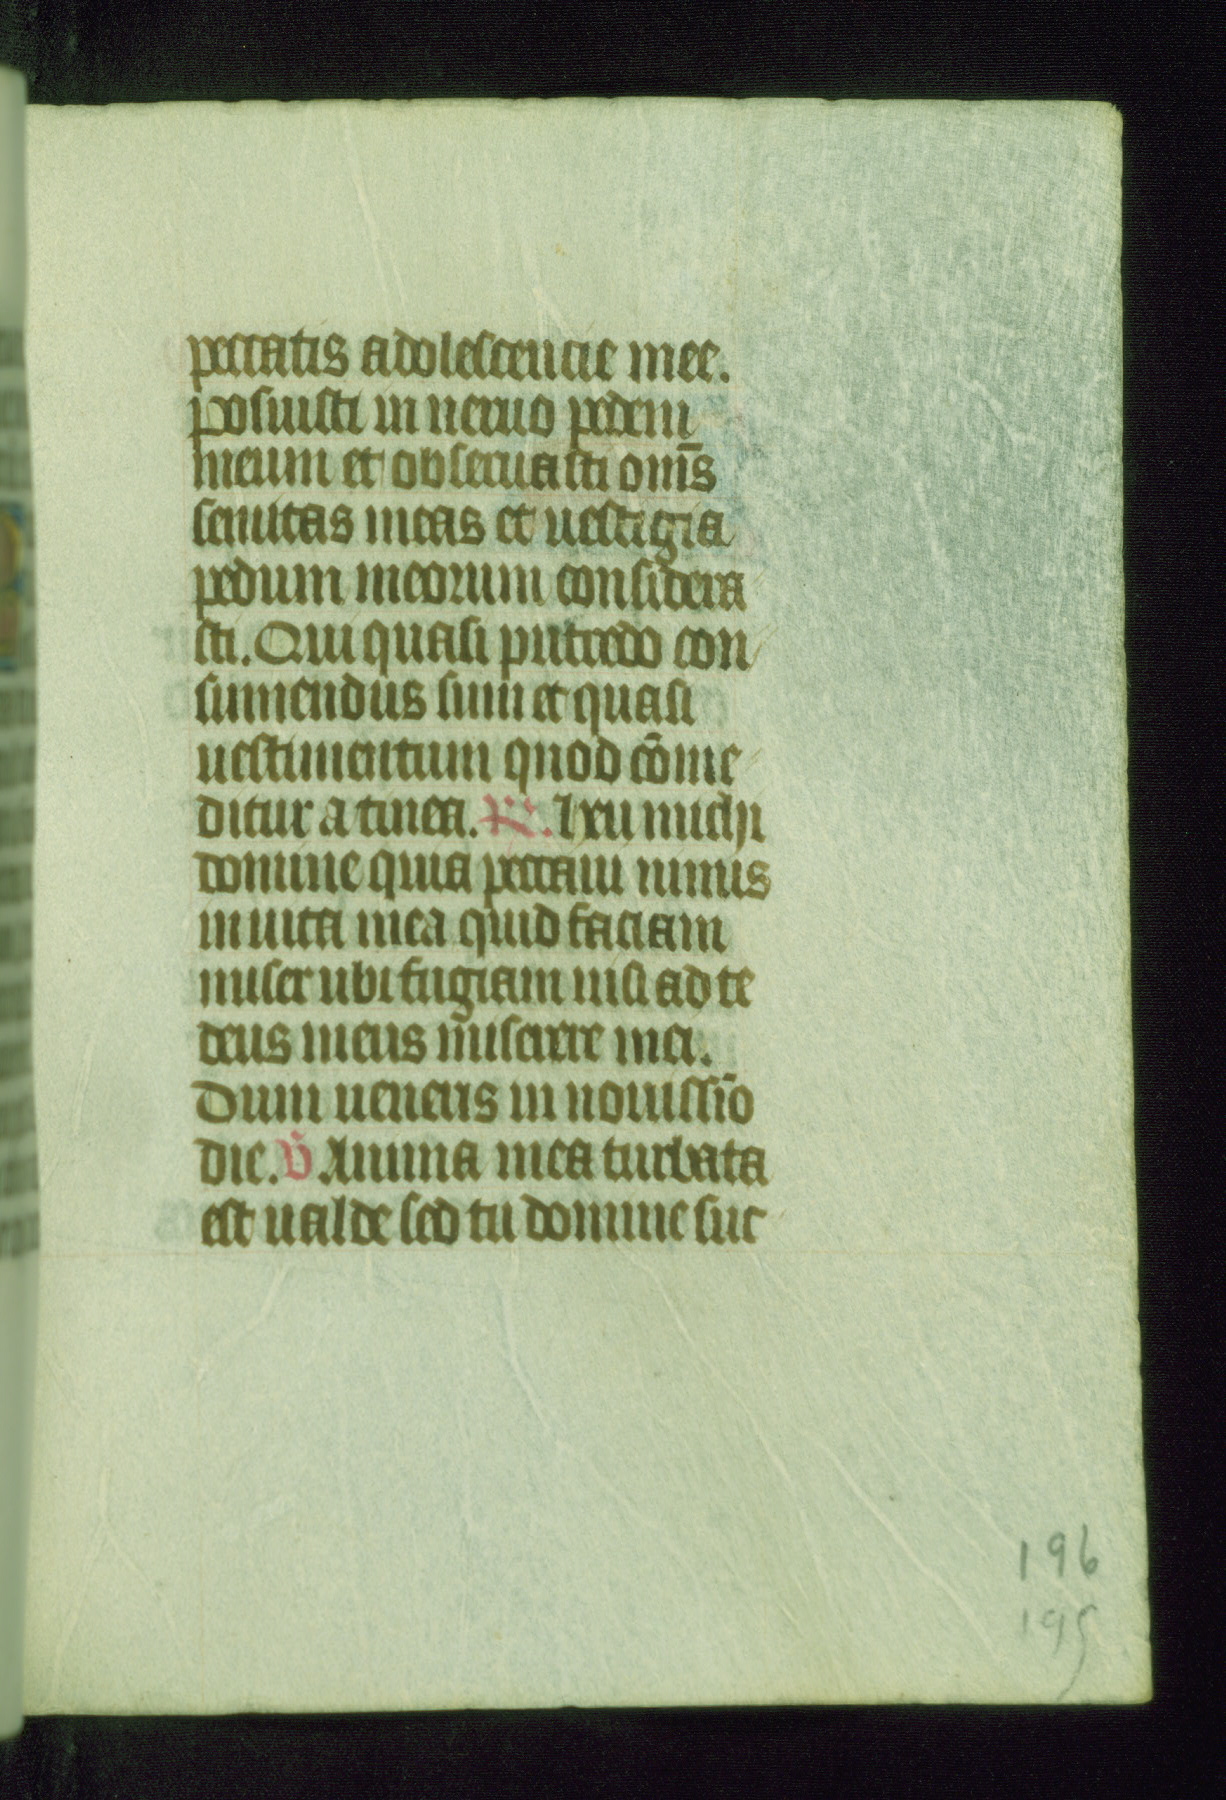 peccatis adolescencie mee.
Posuisti in neruo pedem
meum et obseruasti om̅s
semitas meas et uestigia
pedum meorum considera
sti. Qui quasi putredo con
sumendus sum et quasi
uestimentum quod co̅me
ditur a tinea. R̃. Heu michi
domine quia peccaui nimis
in uita mea quid faciam
miser ubi fugiam nisi ad te
deus meus miserere mei.
Dum ueneris in nouissi̅o
die. Ṽ. Anima mea turbata
est ualde sed tu domine suc
196
195